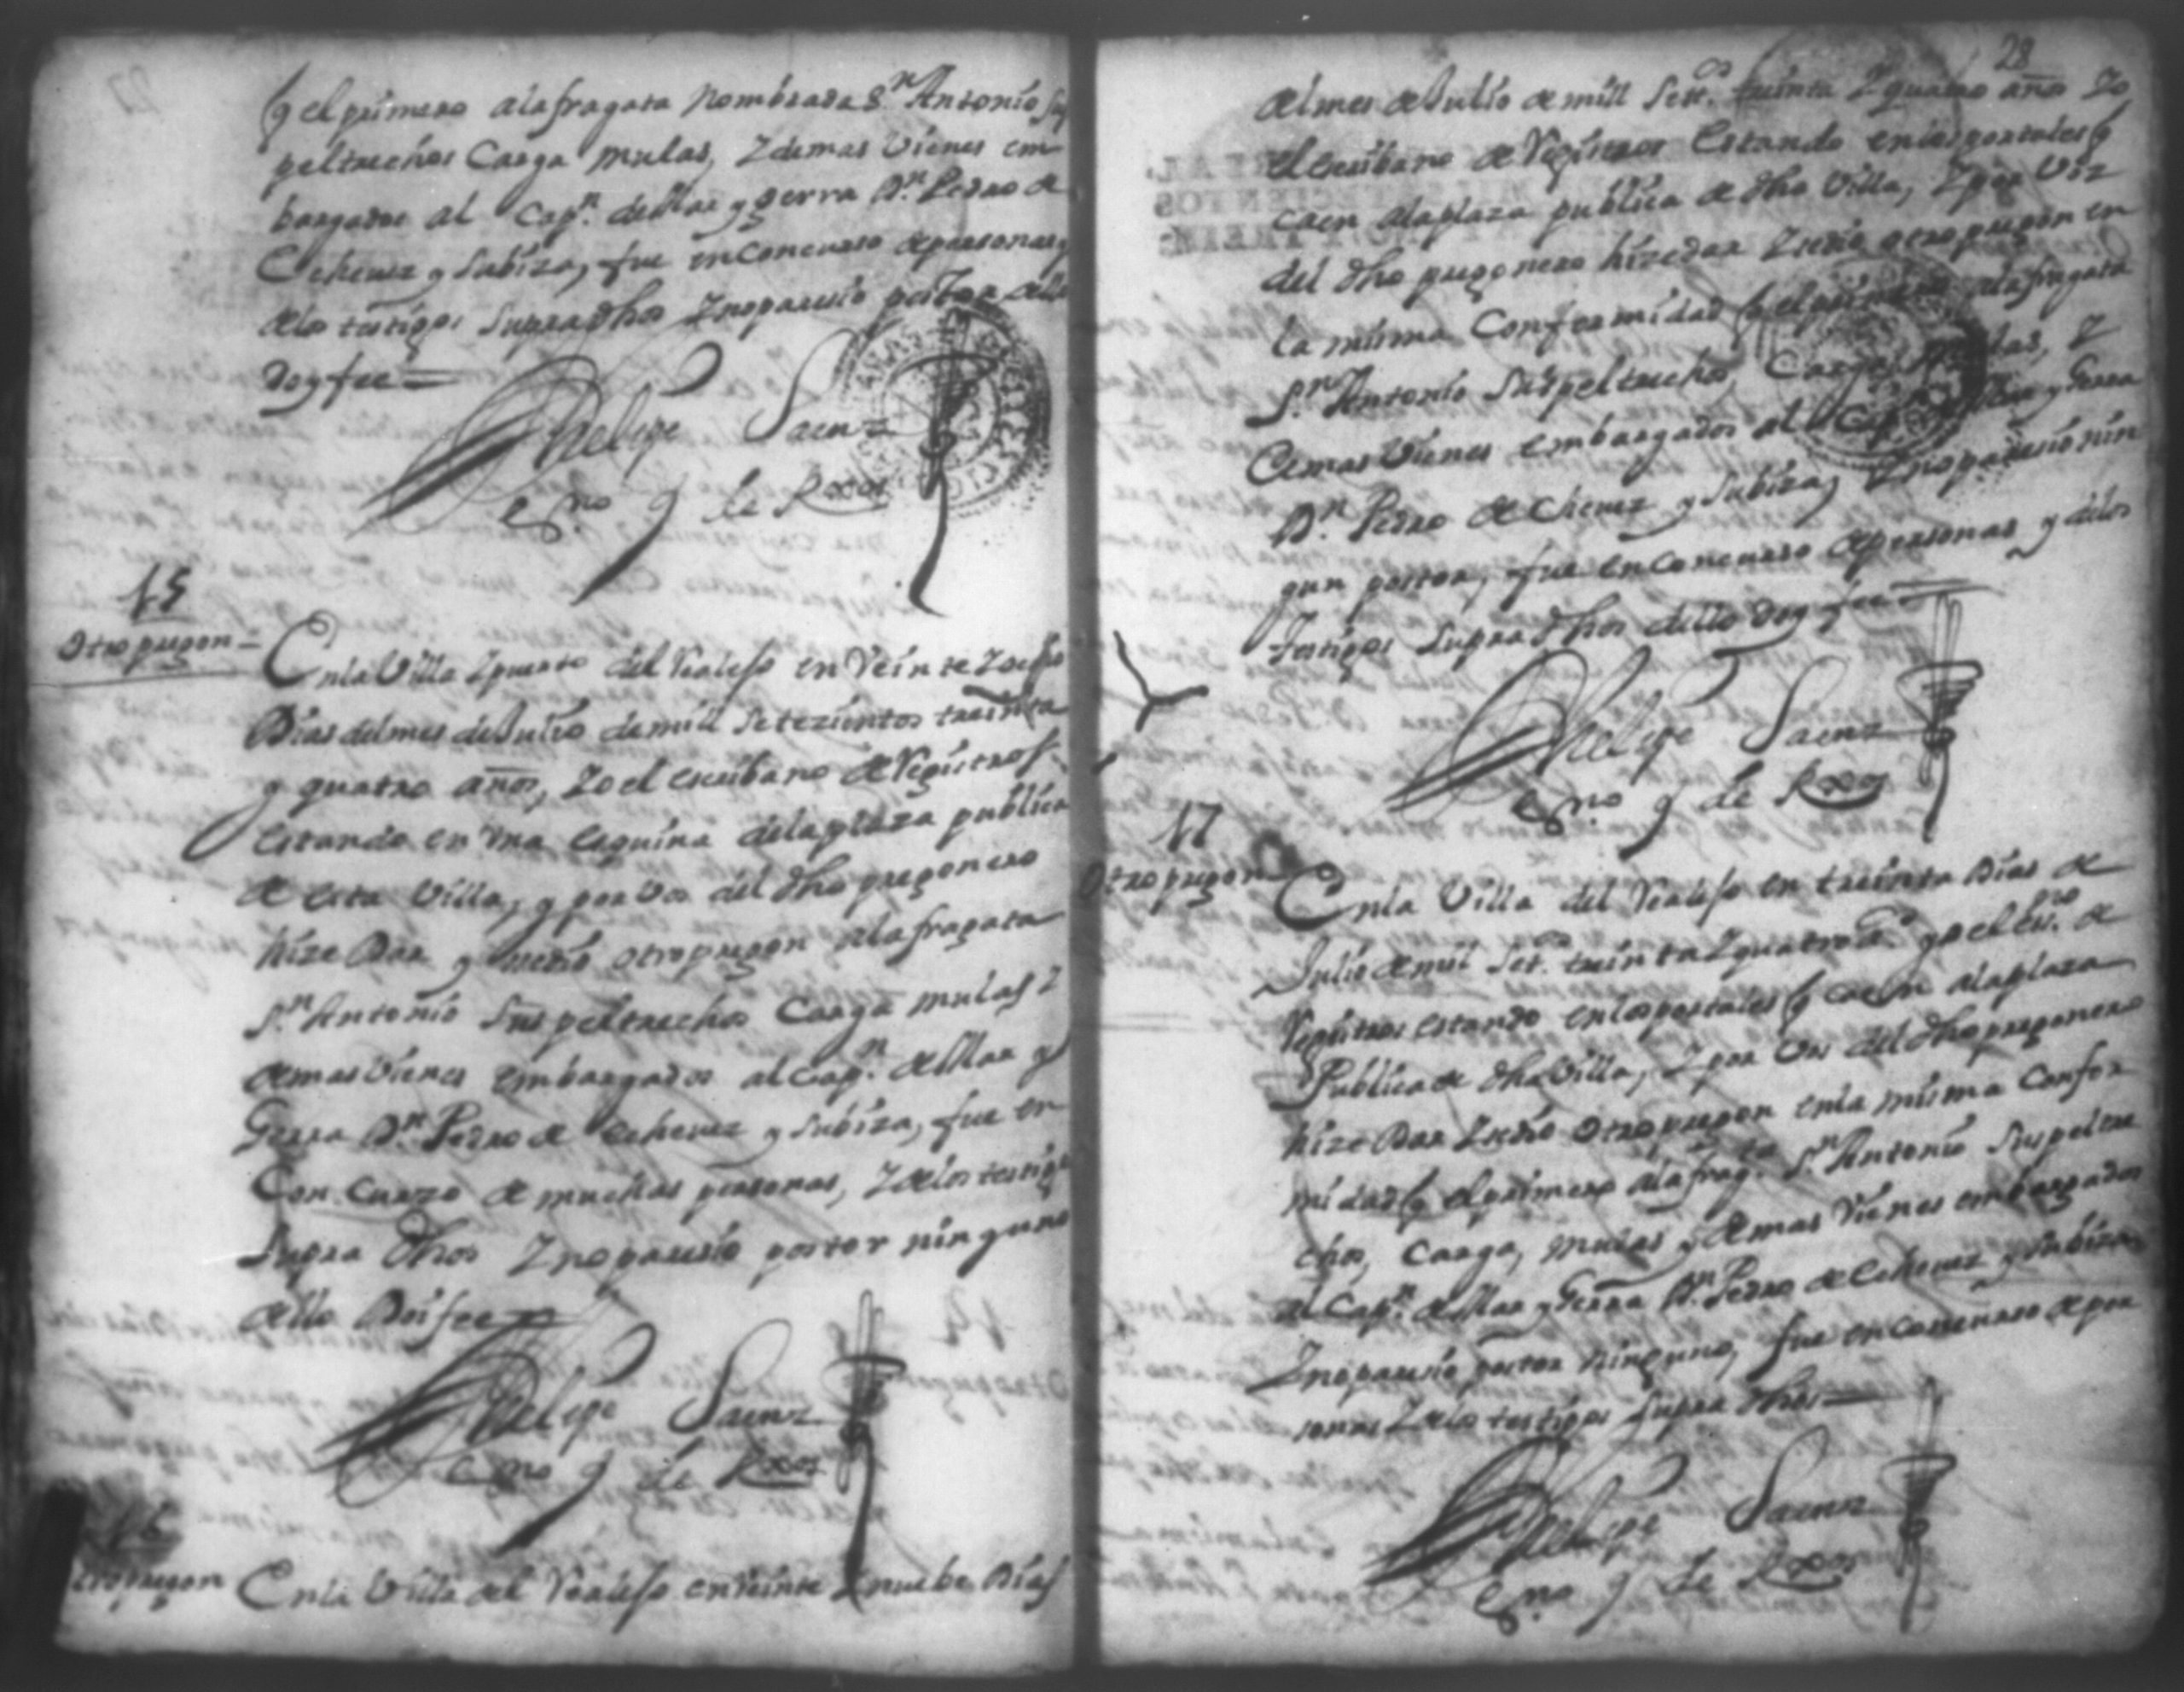 q el primero ala fragata nombrada Sn Antonio sus
peltrechos Carga mulas, Z demas Vienes em
bargados al Capn. de Mar y gerra Dn. Pedro de
Echenez y Subiza, fue en concurso de personas y
de los testigos supra dhos Z no parecio postor dello
doy fee =
Phelipe Saenz
esno q de Rxos
15
Otro pregon =
En la Villa Z puerto del Realejo en Veinte Z ocho
Dias del mes de Julio de mill Setezientos treinta
y quatro años, Zo el escribano de Registros
estando en una esquina dela plaza publica
de esta Villa, y por Vos del dho pregonero
hize Dar y se dio otro pregon ala fragata
Sn. Antonio sus peltrechos Carga mulas Z
demas Vienes embargados al Capn. de Mar y
Gerra Dn. Pedro de Echenez y Subiza, fue en
Concurzo de muchas personas, Z de los testigos
Supra dhos Z no parecio postor ninguno
dello Doi fee =
Phelipe Saenz
esno q de Rxos
16
otro pregon
En la Villa del Realejo en Veinte Z nuebe Dias
28
del mes de Julio de mill Setesos. treinta Z quatro años Zo
el escribano de Registros Estando en los portales q
caen ala plaza publica de dha Villa, Z por Voz
del dho pregonero hize dar Z se dio otro pregon en
la misma Conformidad q el primero ala fragata
Sn. Antonio sus peltrechos, Carga Mulas, Z
demas Vienes embargados al Capn de Mar y Gerra
Dn. Pedro de Echenez y Subiza, Z no parecio nin
gun postor, fue en concurso de personas y delos
testigos supra dhos dello doy fee =
Phelipe Saenz
esno. q de Rxos
17
Otro pregon
En la Villa del Realejo en treinta Dias de
Julio de mil Sets. treinta Z quatro as. yo el esno. de
Registros estando en los portales q caen ala plaza
Publica de dha Villa, Z por Vos del dho pregonero
hize Dar Z se dio otro pregon en la misma Confor
midad q el primero ala fragta. Sn. Antonio sus peltre
chos, Carga, mulas y demas Vienes embargados
al Capn. de Mar y Gerra Dn. Pedro de Echenez y Subiza
Z no parecio postor ninguno, fue en concurso de per
sonas Z delos testigos supra dhos =
Phelipe Saenz
esno. q de Rxos